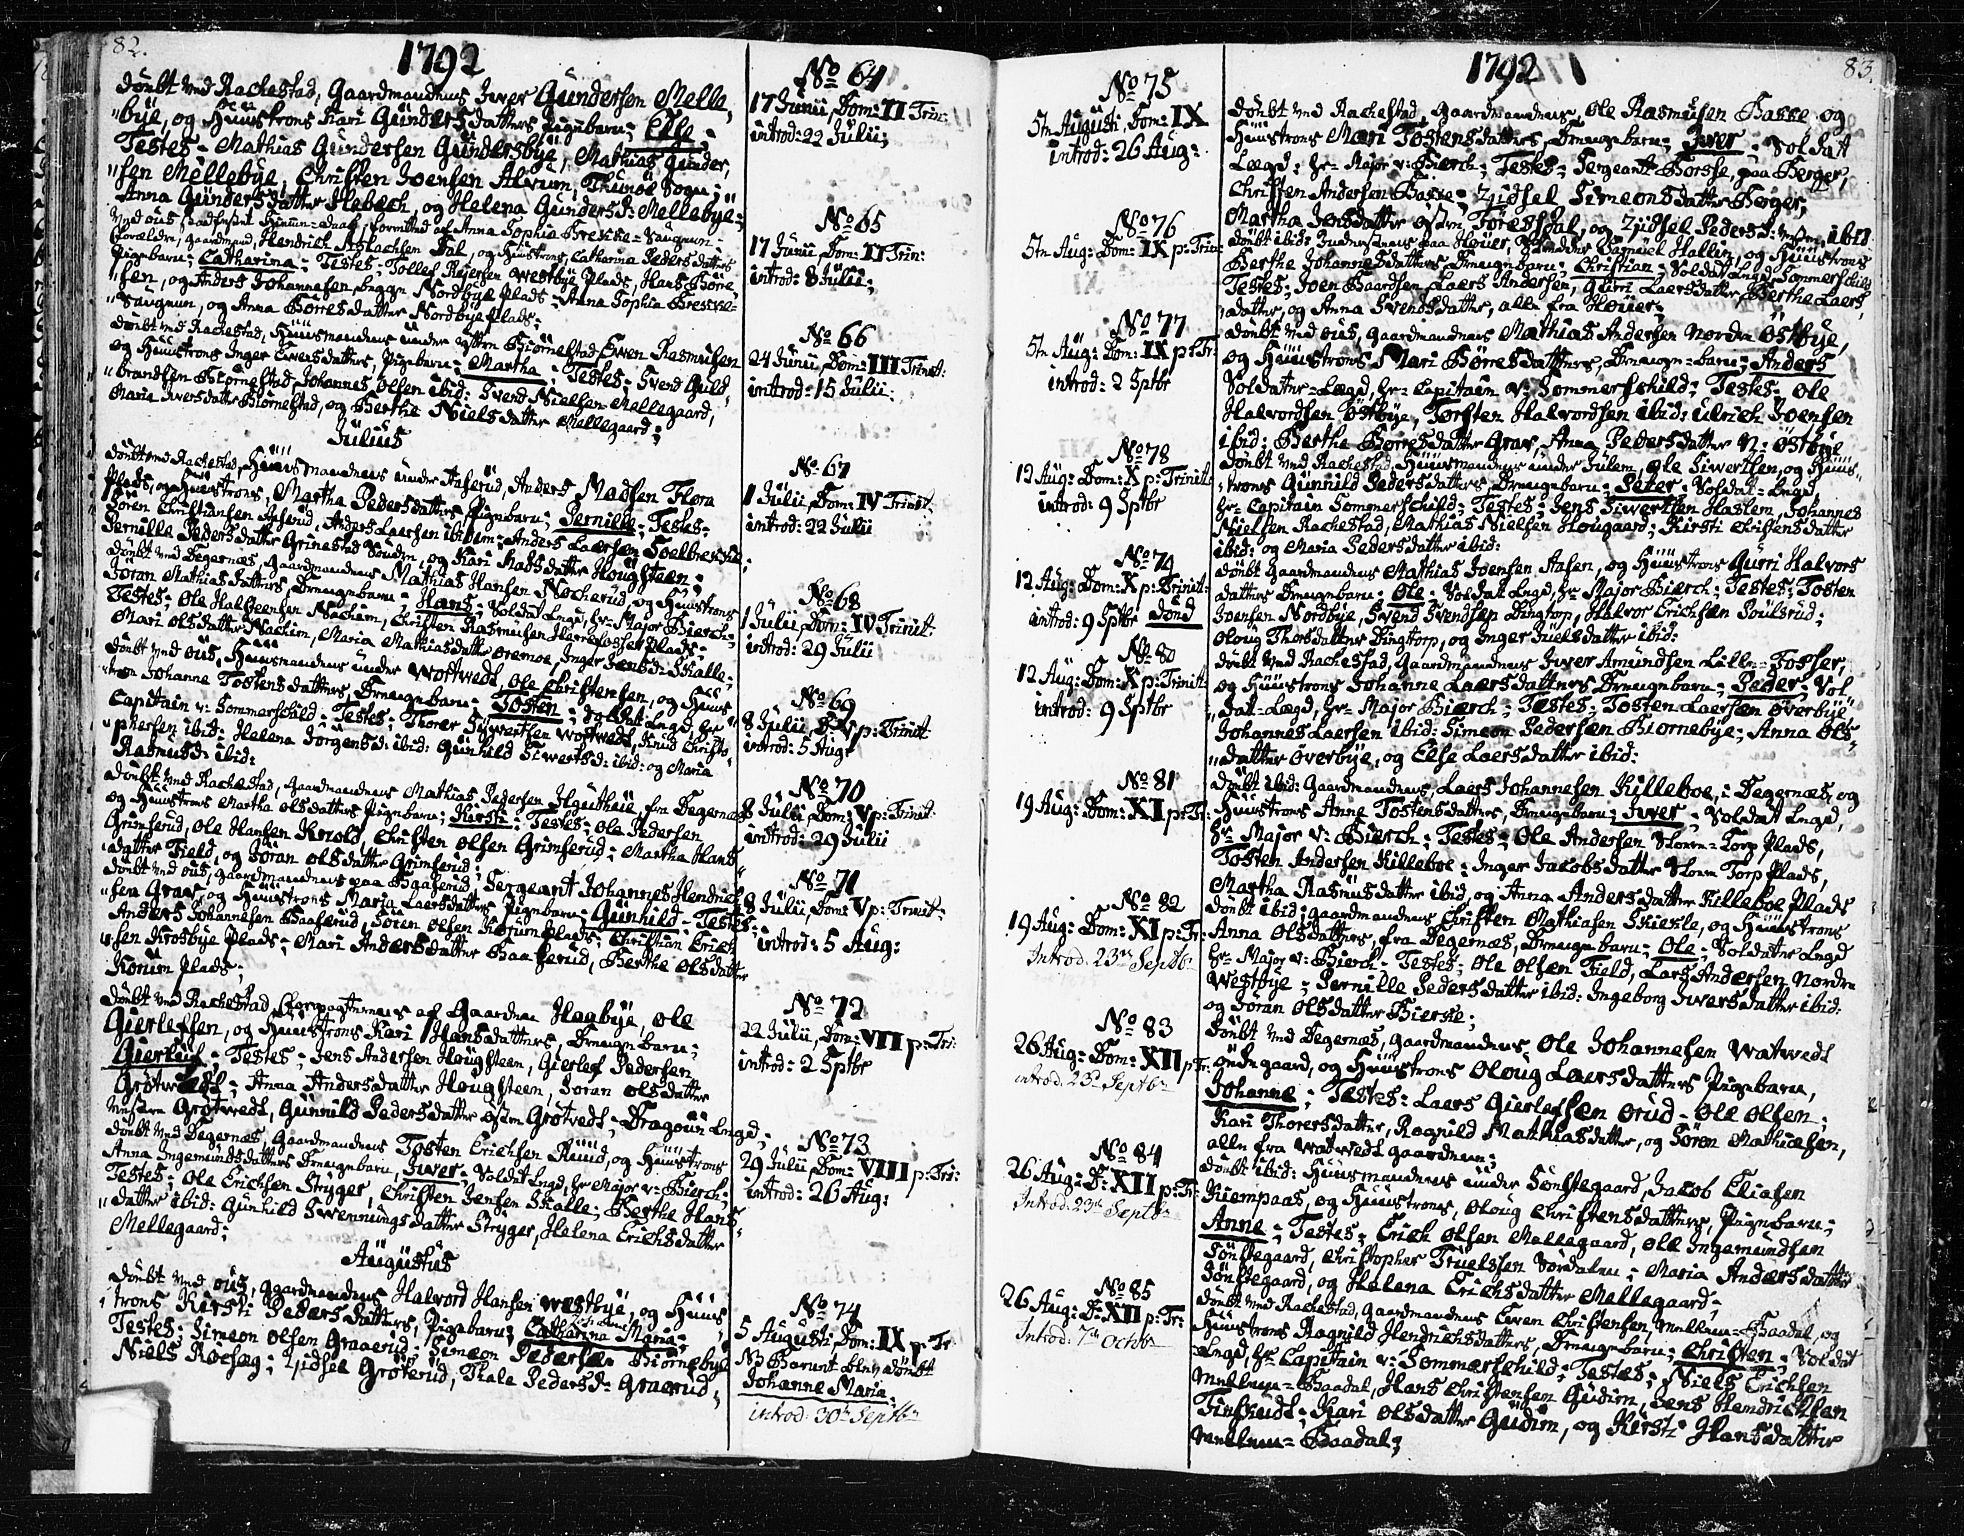 82.
1792
döbt ved Rachestad, Gaardmandens Iwer Gündersen Melle,
"bÿe, og Hüüstrons Kari Günders datters Pigebarn; Else
Testes - Mathias Gündersen Gündersbÿe, Mathias Günder,
"sen Mellebÿe, Christen Joensen Alvum, Thunöe Sogn;
Anna Günders datter Hebæch, og Helena Günders d: Mellebÿe;
Anna Sophia
Forældre, Gaardmand, Hendrich Aslachsen Dal, og Hüüstrons, Catharina Peders datters
Pigebarn; Catharina; Testes; Tollef Westbÿe Plads, Hans Börre,
"sen, og Anders Johannesen, Nordbÿe Plads - Anna Sophia
og Anna Börres datter Nordbÿe Plads;
döbt ved Rachestad, Hüüsmandens ünder Biörnestad Ewen Rasmüsen
og Hüüstrons Inger Ewers datters, Pigebarn; Martha; Testes; Svend Güld,
"brandsen Biörnestad, Johannes Olsen ibid: Svend Nielsen Mellegaard,
Maria Iwers datter Biörnestad, og Berthe Niels datter Mellegaard;
Jülius
döbt ved Rachestad, Hüüsmandens ünder Aaserüd, Anders Madsen Flora
Plads, og Hüüstrons, Martha Peders datters Pigebarn; Pernille; Testes-
Sören Christiansen Aaserüd, Anders Laersen ibidem; Anders Laersen
Pernille Peders datter Grinestad og Kari Mads datter Hougsteen;
döbt ved Degernæs, Gaardmandens Mathias Hansen Nocherüd, og Hüüstrons
Jöran Mathias datters, Drengebarn - Hans; Soldat Lægd, hr. Major Bierch -
Testes; Ole Halsteensen Nachim, Christen Rasmüsen Herrefosser Plads;
Mari Ols datter Nachim, Maria Mathias datter Oremoe, Inger Jens d: Skalle;
döbt ved oüs, Hüüsmandens ünder Wortwedt, Ole Christensen, og Hüüs
"tron Johanne Tostens datters, Drengebarn; Tosten; Soldat Lægd hr:
Capitain v: Sommerschild; Testes; Thorer Siwertsen Wortwedt, Knüd Christo,
"phersen ibid: Helena Jörgens d: ibid: Günhild Siwerts d: ibid: og Maria
Rasmüs d: ibid:
döbt ved Rachestad, Gaardmandens Mathias Pedersen fra Degernæs
og Hüüstrons Martha Ols datters Pigebarn; Kirsti; Testes; Ole Pedersen
Grimserüd, Ole Hansen Krold, Christen Olsen Grimserüd; Martha Hans
"datter Field, og Söran Ols datter Grimserüd;
döbt ved oüs, Gaardmandens paa Baaserüd, Sergeant Johannes Hendrich
"sen Graw, og Hüüstrons Maria Laers datters Pigebarn; Günhild - Testes;
Anders Johannesen Baaserüd, Sören Olsen Korum Plads; Christian Erich
"sen Krosbÿe Plads; Mari Anders datter Baaserüd, Berthe Ols datter
Korüm Plads;
döbt ved Rachestad, Forpagterens af Gaarden Hagbÿe, Ole
Gierlefsen, og Hüüstrons Kari Hans datters, Drengebarn;
Gierlüf - Testes; Jens Andersen Hougsteen, Gierlef Pedersen
Grötwedt; Anna Anders datter Hougsteen, Söran Ols datter
Grötwedt, Günnild Peders datter Grötwedt; Dragoün Lægd;
döbt ved Degernæs, Gaardmandens Tosten Erichsen Rüüd, og Hüüstrons
Anna Ingemünds datters Drengebarn, Iwer - Soldat Lægd, hr Major v: Bierch;
Testes; Ole Erichsen Strÿger, Christen Jensen Skalle; Berthe Hans
"datter ibid: Günhild Swennings datter Strÿger, Helena Erichs datter
Mellegaard;
Aügüstüs
döbt ved oüs, Gaardmandens Halvord Hansen Westbÿe, og Hüüs
"trons Kirsti Peders datters, Pigebarn; Catharina Maria;
Testes; Simeon Olsen Graaerüd; Simeon Pedersen Biörnebÿe
Niels Roesæg; Zidsel Gröterüd, Thale Peders d: Graarüd;
No 64
17 Junii, Dom: II Trin:
introd: 22 Julii;
No 65
17 Junii, Dom: II Trin:
introd: 8 Julii;
No 66
24 Junii, Dom: III Trinit:
introd: 15 Julii:
No 67
1 Julii, Dom: IV Trinit.
introd: 22 Julii
No 68
1 Julii, Dom: IV Trinit.
introd: 29 Julii
No 69
8 Julii D: V p: Trinit
introd: 5 Aug:
No 70
8 Julii, Dom: V p: Trinit
introd: 29 Julii
No 71
8 Julii, Dom: V p: Trinit:
introd: 5 Aug:
No 72
22 Julii, Dom: VII p: Tri:
introd: 2 Sptbr
No 73
29 Julii, Dom: VIII p: Tri:
introd: 26 Aug:
No 74
5 Augusti, Dom: IX p: Tr
NB Barnet blev döbt
Johanne Maria.
introd: 30te Septbr
83.
1792
No 75
5te Augusti, Dom: IX
introd: 26 Aug:
No 76
5te Aug: Dom: IX p: Trin:
No 77
5te Aug: Dom: IX p: Tr:
introd: 2 Sptbr
No 78
12 Aug: Dom: X p: Trinit:
introd: 9 Sptbr
No 79
12 Aug: Dom: X p: Trinit:
introd: 9 Sptbr död
No 80
12 Aug: Dom: X p: Trinit:
introd: 9 Sptbr
No 81
19 Aug: Dom: XI p: Tr:
No 82
19 Aug: Dom: XI p: Tr:
Introd. 23de Septbr
No 83
26 Aug: Dom: XII p: Tr:
introd. 23de Septbr
No 84
26 Aug: D: XII p: Tr:
Introd: 23de Septbr
No 85
26 Aug: D: XII p: Tr:
Introd: 7de Octobr
döbt ved Rachestad Gaardmandens, Ole Rasmüsen Basse og
Hüüstrons Mari Tostens datters, Drengebarn; Iwer - Soldat
Lægd: hr- Major v: Bierch; Testes; Sergeant Borsse, paa Berger,
Christen Andersen Basse; Zidsel Simeons datter Berger,
Martha Jens datter Töresdal, og Zidsel Peders d: ibd
döbt ibid: paa Höüer, Samüel Hallin, og Hüüstrons
Berthe Johannes datters Drengebarn; Christian; Soldat Lægd Sommerschild
Testes; Joen Baardsen Laers Andersen, Gurri Laers datter Berthe Laers
"datter, og Anna Svends datter, alle fra Höüer;
döbt ved oüs, Gaardmandens Mathias Andersen Nordre Östbÿe,
og Hüüstrons Mari Börres datters, Drenge-barn; Anders
Soldater-Lægd, hr- Capitain v: Sommerschild; Testes- Ole
Halvordsen Östbÿe, Torsten Halvordsen ibid: Ulrich Joensen
ibid: Berthe Börres datter Graw, Anna Peders datter N: Östbÿe
döbt ved Rachestad, Hüüsmandens ünder Jülem, Ole Siwertsen, og Hüüs
"trons Günnild Peders datters, Drengebarn; Peter - Soldat-Lægd,
hr- Capitain Sommerschild; Testes; Jens Siwertsen Haslem, Johannes
Nielsen Rachestad, Mathias Nielsen Hougaard; Kirsti Christens datter
ibid: og Maria Peders datter ibid:
döbt Gaardmandens Mathias Joensen Aasen, og Hüüstrons Gürri Halvors
datters Drengebarn: Ole - Soldat Lægd, hr- Major Bierch; Testes; Tosten
Joensen Nordbÿe, Svend Svendsen Lingtorp, Halvor Erichsen Soülsrüd;
Oloug Thors datter Lingtorp, og Inger Jüels datter ibid:
döbt ved Rachestad, Gaardmandens Iwer Amündsen Lille-Fosser,
og Hüüstrons Johanne Laers datters Drengebarn; Peder, Sol
"dat-Lægd, hr- Major Bierch; Testes; Tosten Laersen Överbÿe
Johannes Laersen ibid: Simeon Pedersen Biörnebÿe; Anna Ols
"datter Överbÿe, og Else Laers datter ibid:
döbt ibid: Gaardmandens, Laers Johannesen Killeboe, i Degernæs, og
Hüüstrons Anne Tostens datters, Drengebarn; Iwer; Soldat Lægd,
hr- Major v: Bierch; Testes; Ole Andersen Torp Plads,
Tosten Andersen Killeboe; Inger Jacobs datter Torp Plads,
Martha Rasmüs datter ibid, og Anna Anders datter Killeboe Plads
döbt ibid: Gaardmandens Christen Mathiasen Skiekle, og Hüüstrons
Anna Ols datters, fra Degernæs, Drengebarn; Ole; Soldater Lægd
hr- Major v: Bierch- Testes; Ole Olsen Field, Lars Andersen Nordre
Westbÿe - Pernille Peders datter ibid: Ingeborg Iwers datter ibid:
og Söran Ols datter Bierke;
döbt ved Degernæs, Gaardmandens Ole Johannesen Watwedt
öndegaard, og Hüüstrons Oloug Laers datters Pigebarn,
Johanne; Testes: Laers Gierlefsen Örud - Ole Olsen;
Kari Thorers datter, Ragnild Mathias datter, og Sören Mathiasen,
alle fra Watwedt gaardene;
döbt ibid: Hüüsmandens ünder Sönstegaard, Jacob Eliasen
Kiempaas, og Hüüstrons, Oloug Christens datters, Pigebarn;
Anne; Testes; Erich Olsen Mellegaard, Ole Ingemündsen
Sönstegaard, Christopher Trüelssen Sördalen; Maria Anders datter
Sönstegaard, og Helena Erichs datter Mellegaard;
döbt ved Rachestad, Gaardmandens Ewen Christensen, Mellem-Baadal, og
Hüüstrons Ragnild Hendrichs datters, Drengebarn; Christen; Soldat
-Lægd, hr- Capitain v: Sommerschild; Testes; Niels Erichsen
Mellem-Baadal, Hans Christensen Güdim, Jens Hendrichsen
Kari Ols datter Güdim, og Kirsti Hans datter
Mellem-Baadal;